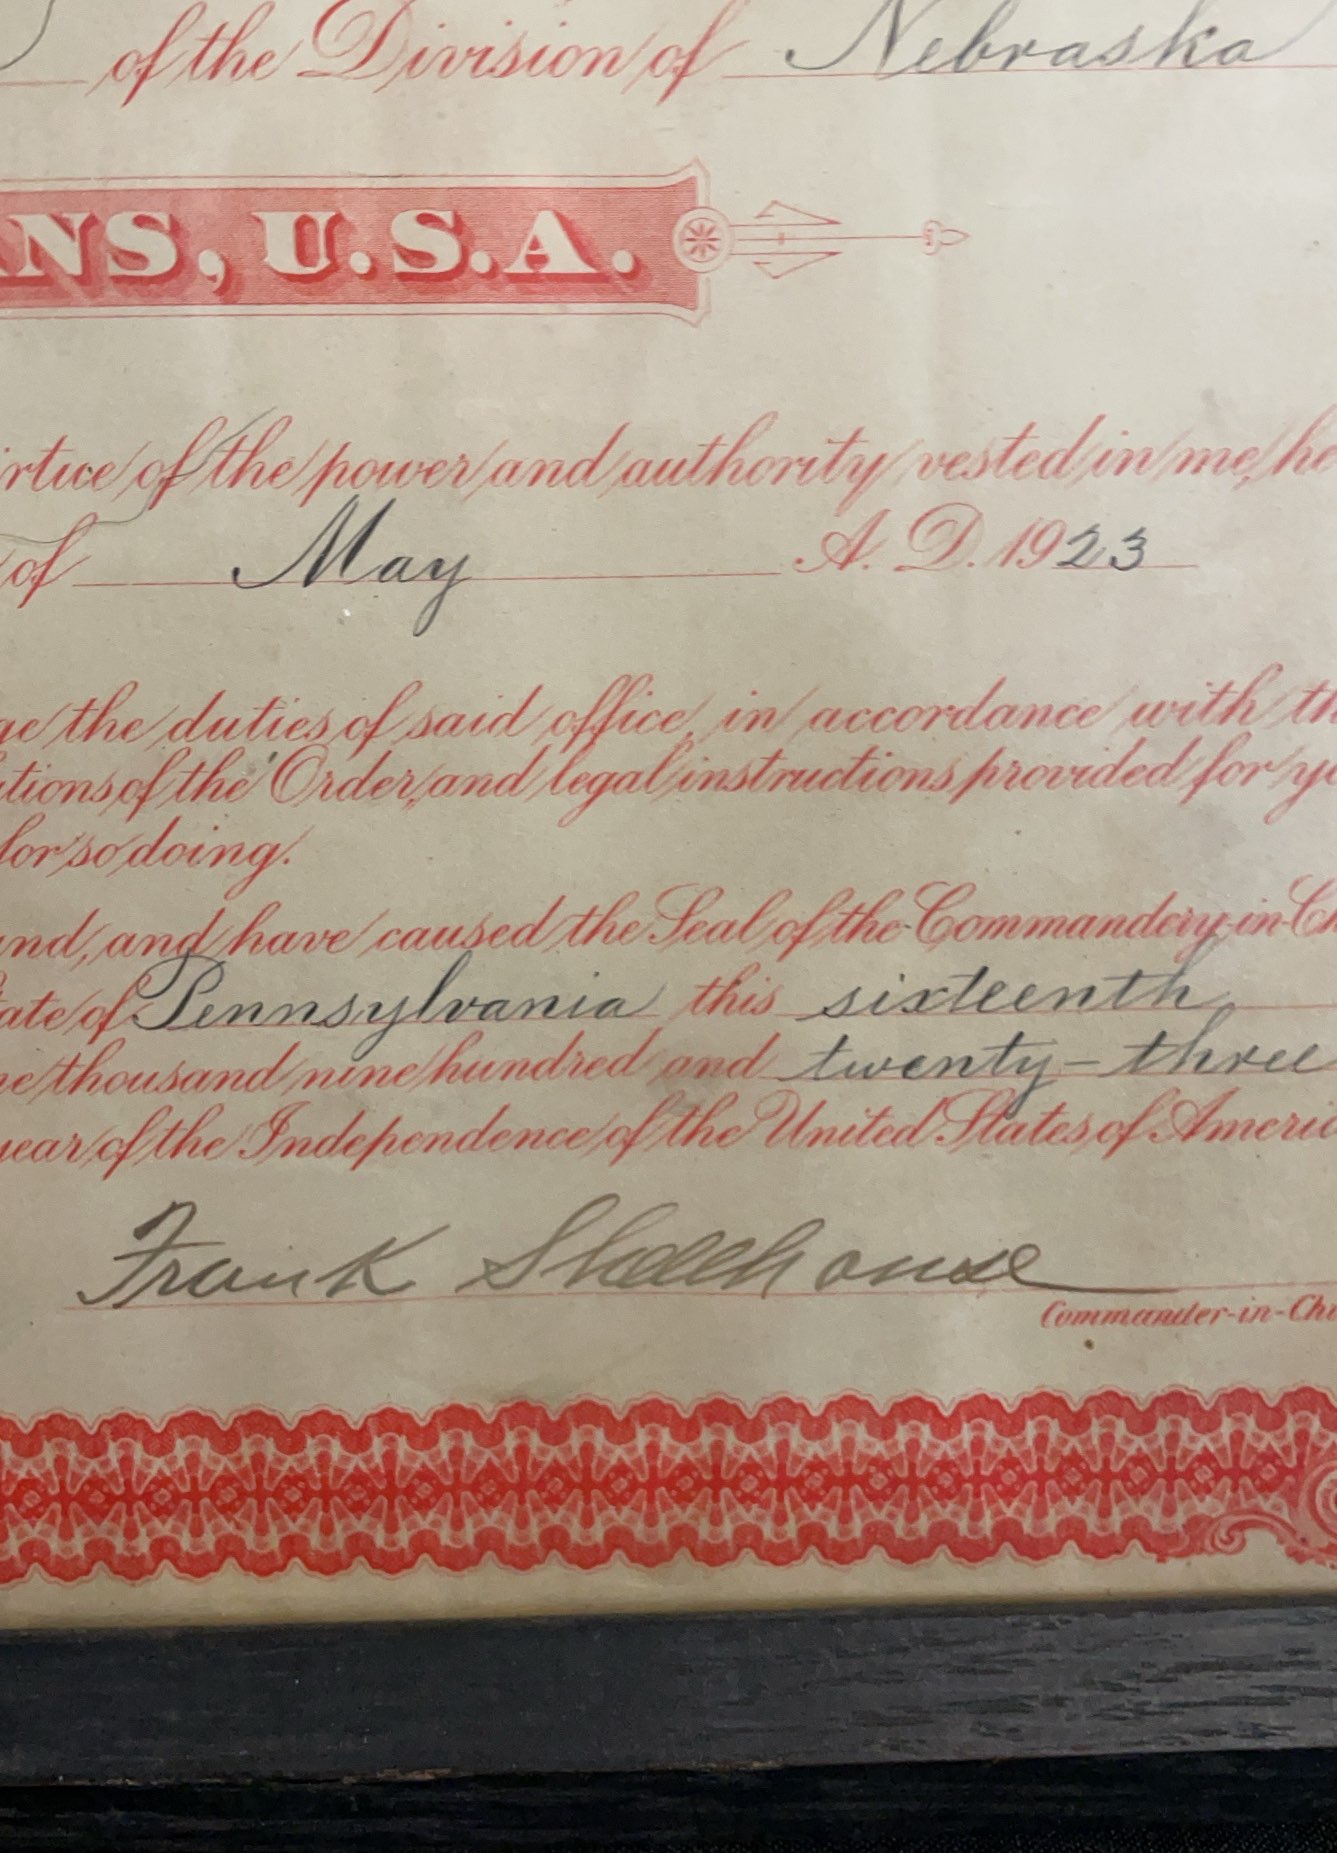 of the Division of Nebraska
NS, U.S.A.
of the power and authority vested in me, he
of May A. D. 1923
the duties of said office, in accordance with th
of the Order, and legal instructions provided for
for so doing.
and, and have caused the Seal of the Commandery-in-Ch
of Pennsylvania this sixteenth
thousand nine hundred and twenty-three
year of the Independence of the United States of Americ
Frank Shellhouse
Commander-in-Chi